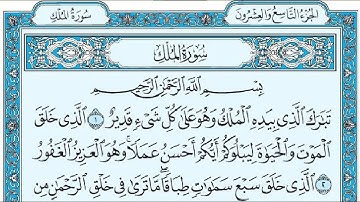 الجزء التاسع والعشرون
سورة الملك
سُورَةُ المُلْكِ
بِسْمِ اللَّهِ الرَّحْمَٰنِ الرَّحِيمِ
تَبَٰرَكَ ٱلَّذِى بِيَدِهِ ٱلْمُلْكُ وَهُوَ عَلَىٰ كُلِّ شَىْءٍ قَدِيرٌ ١ ٱلَّذِى خَلَقَ
ٱلْمَوْتَ وَٱلْحَيَوٰةَ لِيَبْلُوَكُمْ أَيُّكُمْ أَحْسَنُ عَمَلًا وَهُوَ ٱلْعَزِيزُ ٱلْغَفُورُ ٢
ٱلَّذِى خَلَقَ سَبْعَ سَمَٰوَٰتٍ طِبَاقًا مَّا تَرَىٰ فِى خَلْقِ ٱلرَّحْمَٰنِ مِن